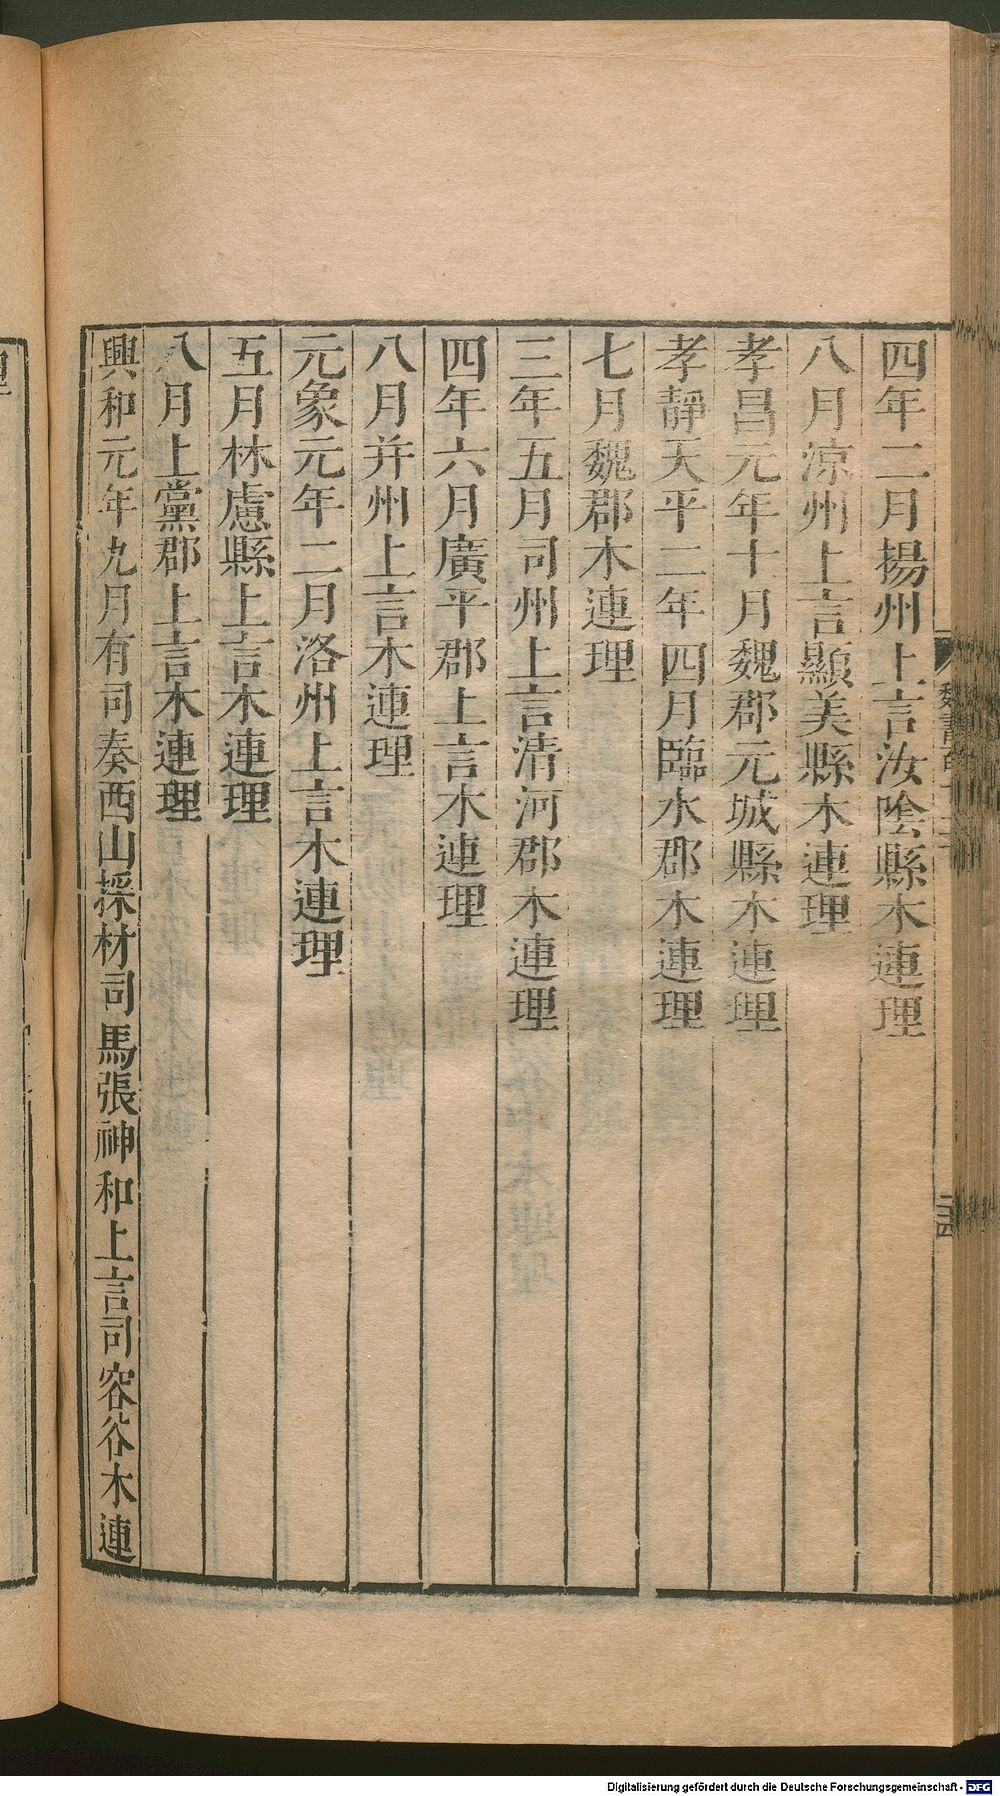 四年二月揚州上言汝陰縣木連理
八月涼州上言顯美縣木連理
孝昌元年十月魏郡元城縣木連理
孝靜天平二年四月臨水郡木連理
七月魏郡木連理
三年五月司州上言清河郡木連理
四年六月廣平郡上言木連理
八月并州上言木連理
元象元年二月洛州上言木連理
五月林慮縣上言木連理
八月上黨郡上言木連理
興和元年九月有司奏西山採材司馬張神和上言司容谷木連
Digitalisierung gefördert durch die Deutsche Forschungsgemeinschaft - DFG